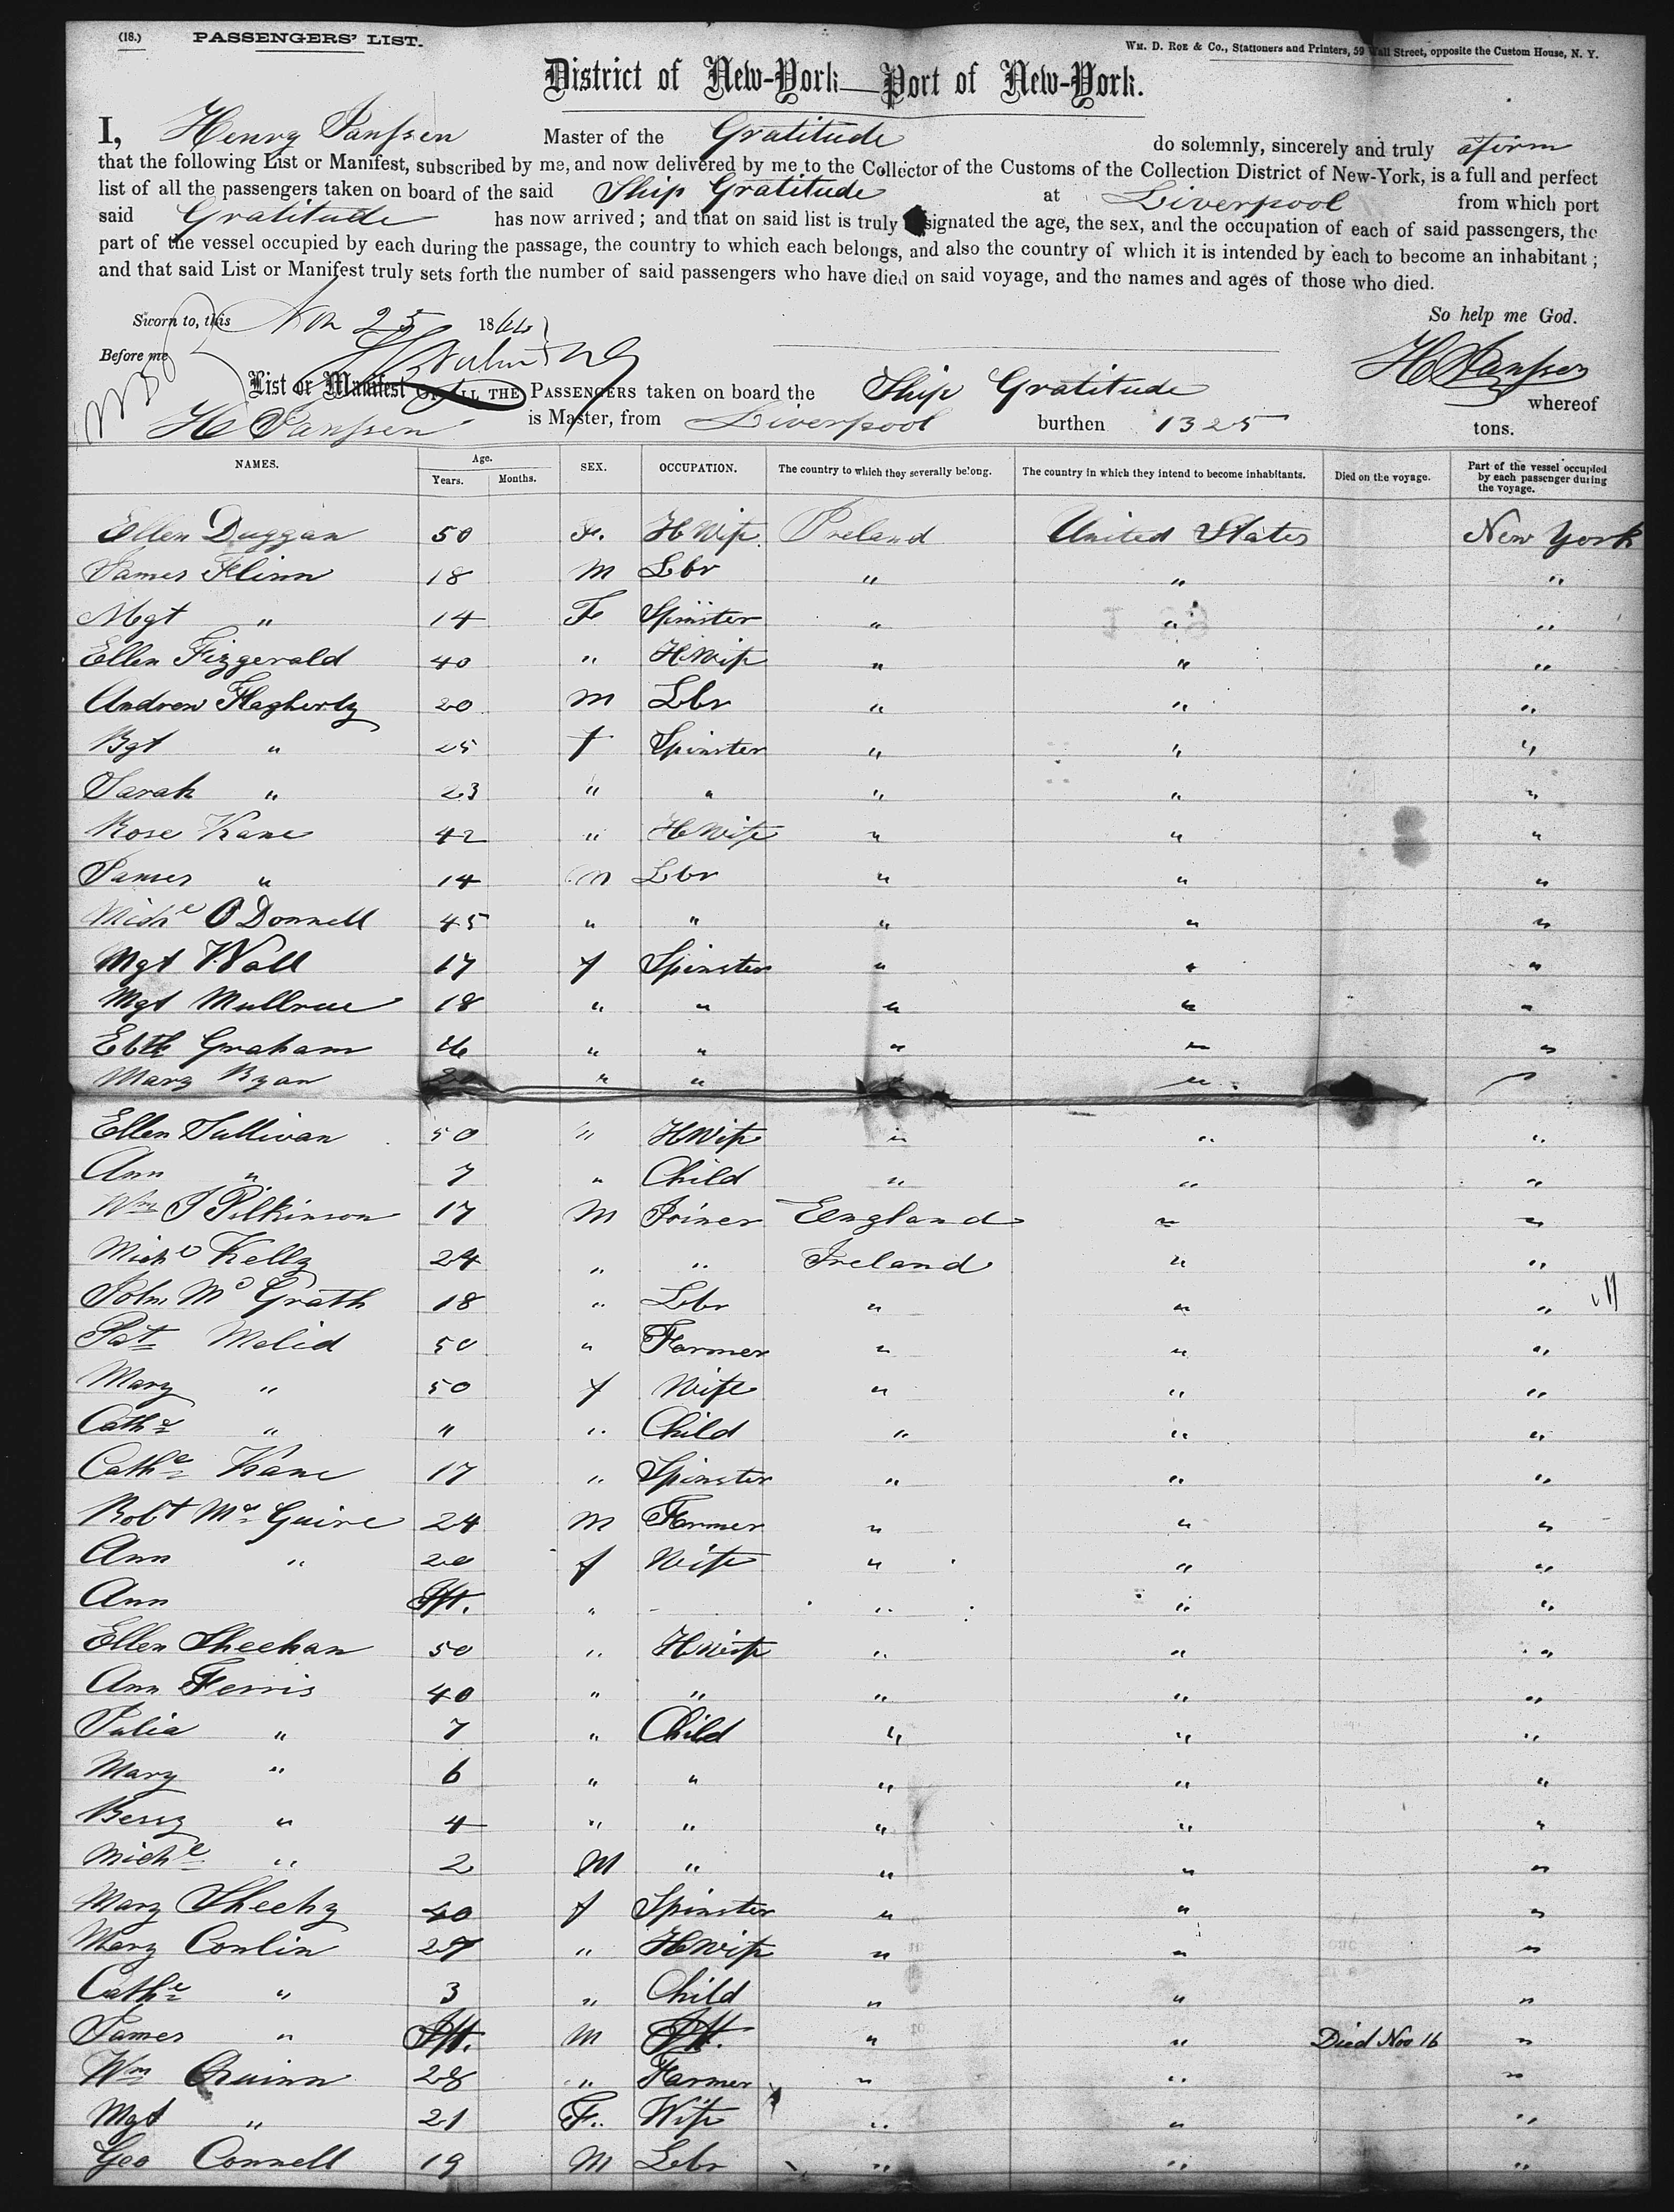 (18.) PASSENGERS' LIST.
Wm. D. Roe & Co., Stationers and Printers, 59 Wall Street, opposite the Custom House, N. Y.
District of New-York—Port of New-York.
I, Henry Janssen Master of the Gratitude do solemnly, sincerely and truly afirm
that the following List or Manifest, subscribed by me, and now delivered by me to the Collector of the Customs of the Collection District of New-York, is a full and perfect
list of all the passengers taken on board of the said Ship Gratitude at Liverpool from which port
said Gratitude has now arrived; and that on said list is truly designated the age, the sex, and the occupation of each of said passengers, the
part of the vessel occupied by each during the passage, the country to which each belongs, and also the country of which it is intended by each to become an inhabitant;
and that said List or Manifest truly sets forth the number of said passengers who have died on said voyage, and the names and ages of those who died.
Sworn to, this Nov 25 1864
So help me God.
Before me
H Janssen
List or Manifest OF ALL THE PASSENGERS taken on board the Ship Gratitude whereof
H Janssen is Master, from Liverpool burthen 1325 tons.
NAMES. Age. Years. Months. SEX. OCCUPATION. The country to which they severally belong. The country in which they intend to become inhabitants. Died on the voyage. Part of the vessel occupied by each passenger during the voyage.
Ellen Duggan 50 Fe. H Wife Ireland United States New York
James Flinn 18 M Lbr " " "
Mgt " 14 Fe Spinster " " "
Ellen Fizgerald 40 " H Wife " " "
Andrew Flagherty 20 M Lbr " " "
Bgt " 25 f Spinster " " "
Sarah " 23 " " " " "
Rose Kane 42 " H Wife " " "
James " 14 M Lbr " " "
Miche O Donnell 45 " " " " "
Mgt Wall 17 f Spinster " " "
Mgt Mullrue 18 " " " " "
Ebth Graham " " " " "
Mary Ryan " " " " "
Ellen Sullivan 50 " H Wife " " "
Ann " 7 " Child " " "
Wm J Pilkinson 17 M Joiner England " "
Miche Kelly 24 " " Ireland " "
John Mc Grath 18 " Lbr " " "
Pat Melid 50 " Farmer " " "
Mary " 50 f Wife " " "
Cathe " " " Child " " "
Cathe Kane 17 " Spinster " " "
Robt Mc Guire 24 M Farmer " " "
Ann " 20 f Wife " " "
Ann Ift. " " " "
Ellen Sheehan 50 " H Wife " " "
Ann Ferris 40 " " " " "
Julia " 7 " Child " " "
Mary " 6 " " " " "
Bessy " 4 " " " " "
Miche " 2 M " " " "
Mary Sheehy 40 f Spinster " " "
Mary Conlin 27 " H Wife " " "
Cathe " 3 " Child " " "
James " Ift. M Ift. " " Died Nov 16 "
Wm Quinn 28 " Farmer " " "
Mgt " 21 F. Wife " " "
Geo Connell 19 M Lbr " " "